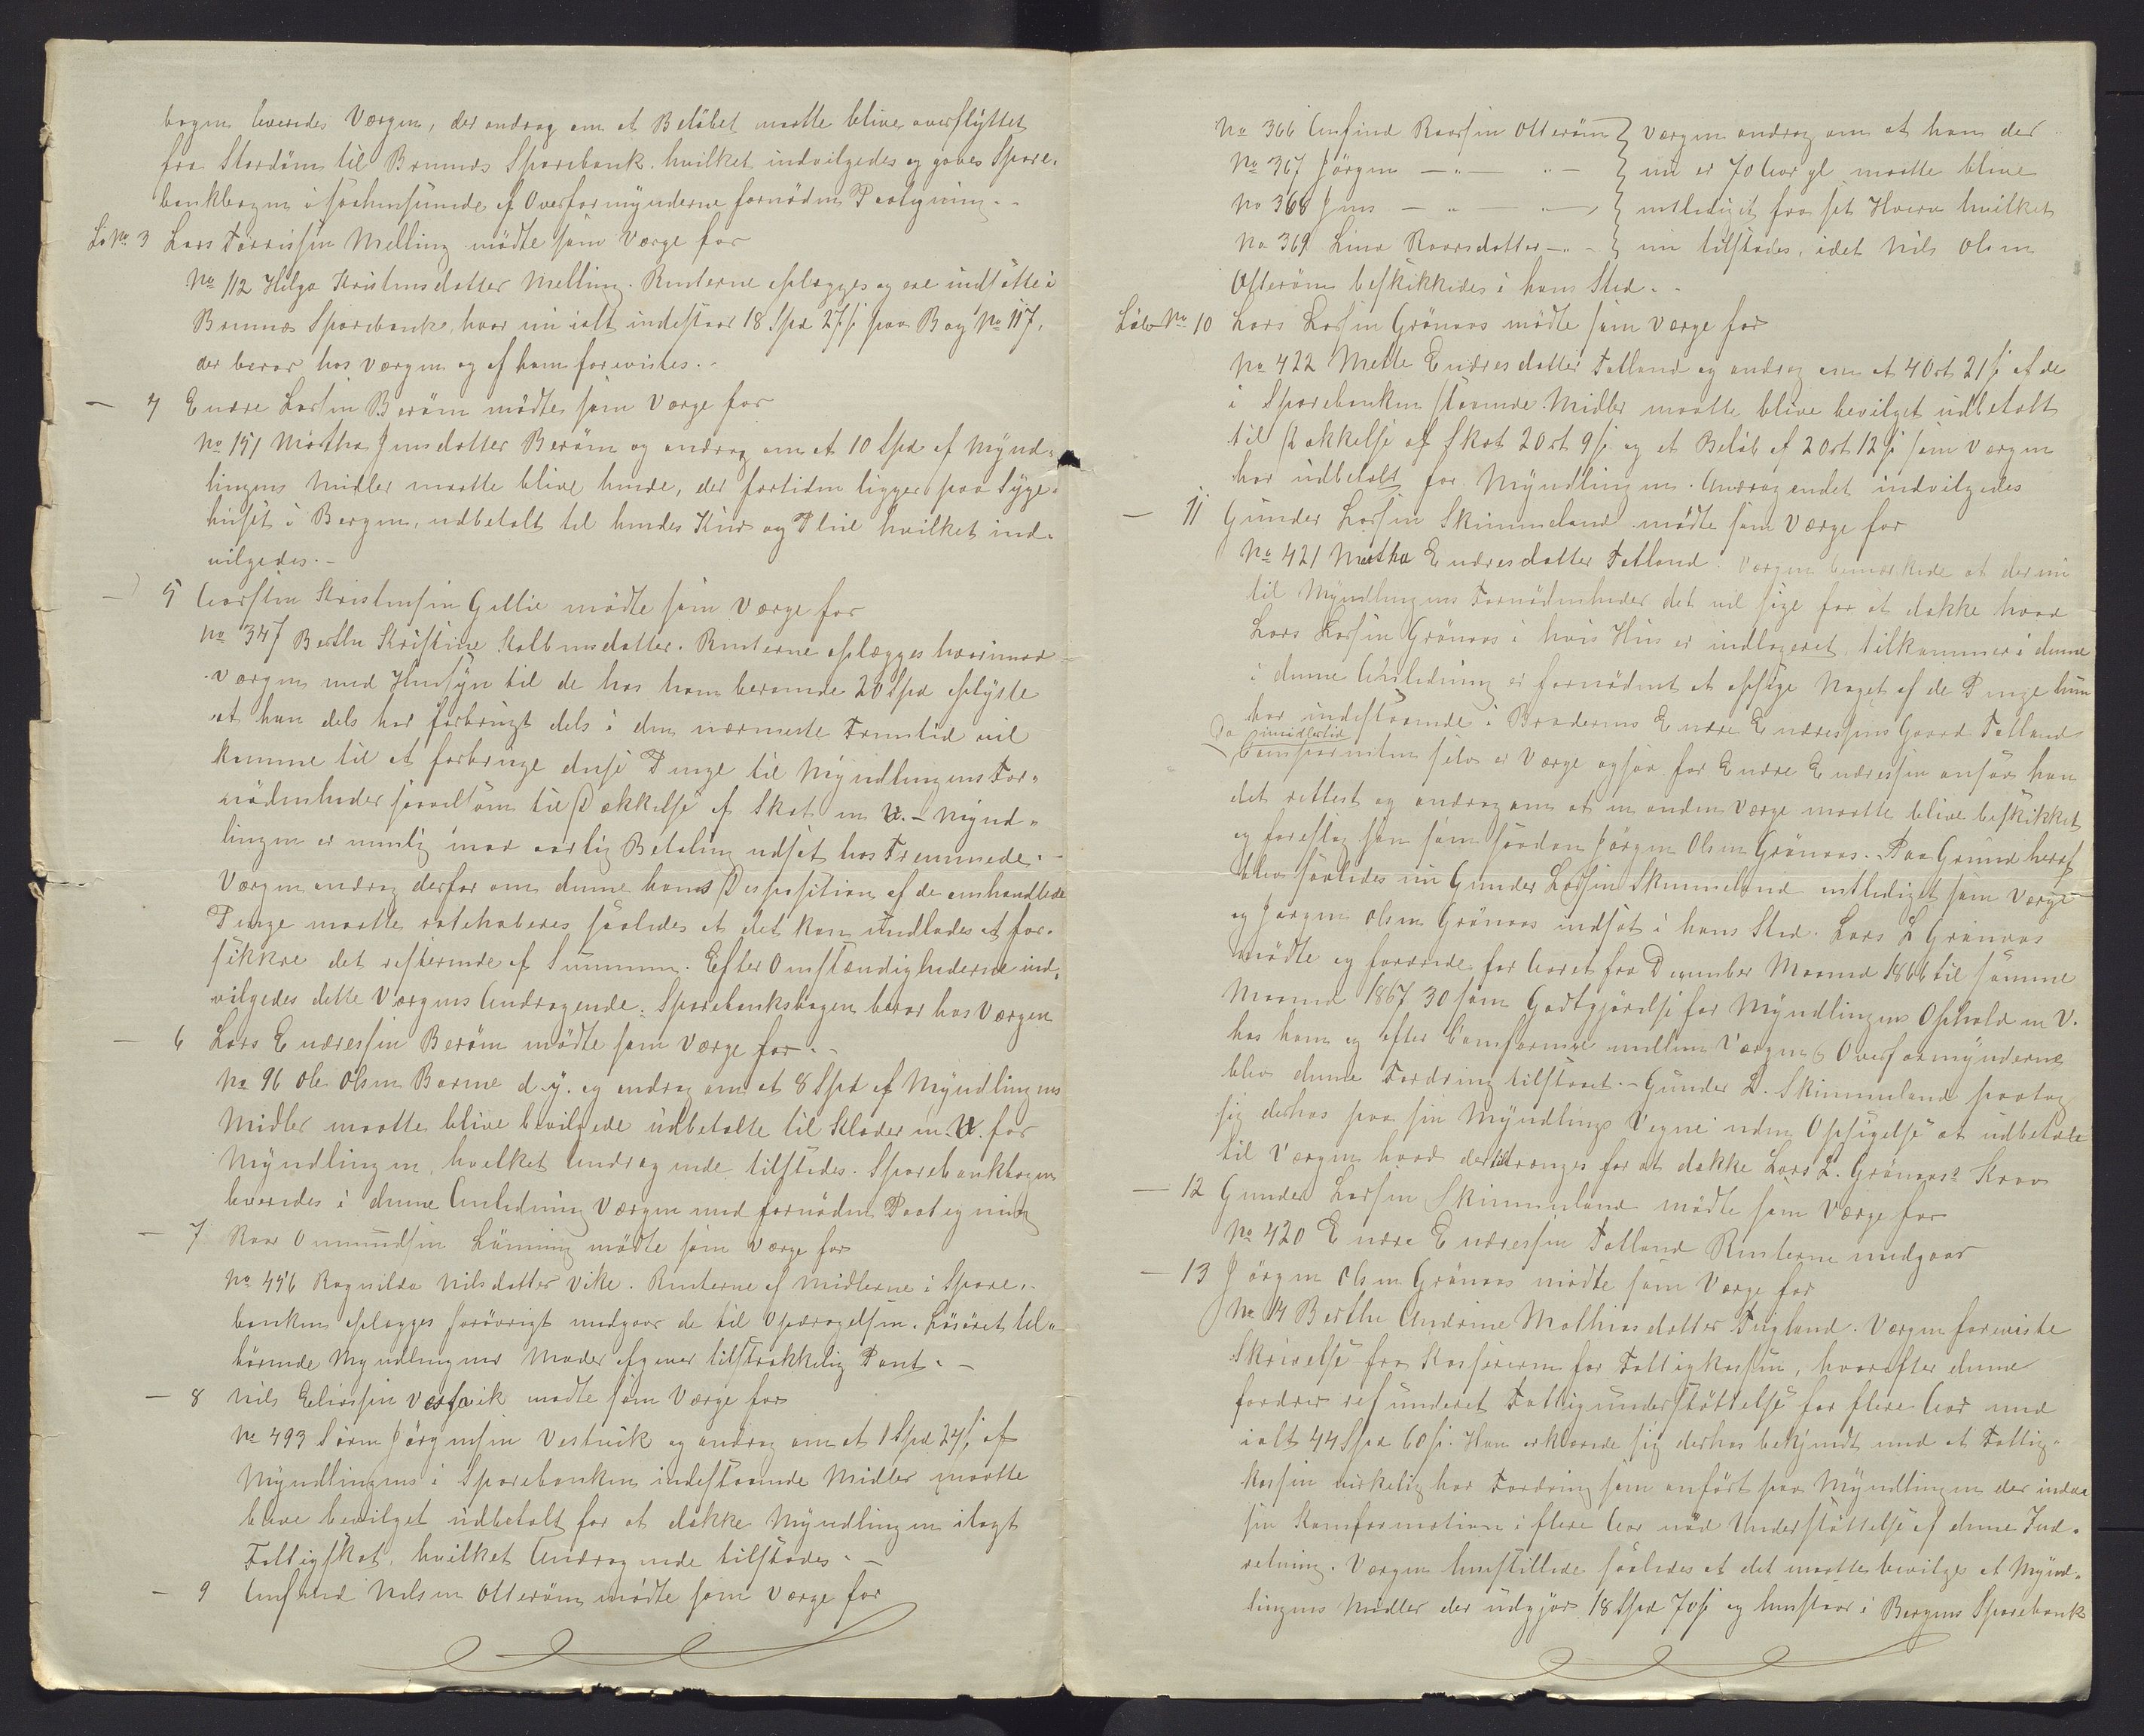 bogen leveredes Værgen, der androg om at Beløbet maatte blive overflyttet
fra Stordøen til Bremnes Sparebank. hvilket indvilgedes og gaves Spare-
bankbogen i saahenseende af Overformynderne fornøden Paategning.-
Lb No 3 Lars Tørrissen Melling mødte som Værge for
No 112 Helga Kristensdatter Melling. Renterne oplægges og ere indsatte i
Bremnes Sparebank, hvor nu ialt indestaar 18 Spd 27 s paa Bog No 117,
der beror hos Værgen og af ham forevistes.-
— 4 Endre Larsen Berøen mødte som Værge for
No 151 Martha Jensdatter Berøen og androg om at 10 Spd af Mynd-
lingens Midler maatte blive hende, der fortiden ligger paa Syge-
huset i Bergen, udbetalt til hendes Kuur og Pleie hvilket ind-
vilgedes.-
— 5 Carsten Kristensen Gillie mødte som Værge for
No 347 Berthe Kristine Kolbensdatter. Renterne oplægges hvorimod
Værgen med Hensyn til de hos ham beroende 20 Spd oplyste
at han dels har forbrugt dels i den nærmeste Fremtid vil
komme til at forbruge disse Penge til Myndlingens For-
nødenheder saavelsom til Dækkelse af Skat m V. - Mynd-
lingen er nemlig mod aarlig Betaling udsat hos Fremmede.-
Værgen androg derfor om denne hans Disposition af de omhandlede
Penge maatte ratihaberes saaledes at det kan undlades at for-
sikkre det resterende af Summen. Efter Omstændighederne ind-
vilgedes dette Værgens Andragende. Sparebanksbogen beror hos Værgen
— 6 Lars Endressen Berøen mødte som Værge for.-
No 96 Ole Olsen Børnø d. y. og androg om at 8 Spd af Myndlingens
Midler maatte blive bevilgede udbetalte til Klæder m. V. for
Myndlingen, hvilket Andragende tilstedes. Sparebankbogen
leveredes i denne Anledning Værgen med fornøden Paategning
— 7 Roar Omundsen Lønning mødte som Værge for
No 456 Ragnilda Nilsdatter Vike. Renterne af Midlerne i Spare-
banken oplægges forøvrigt medgaar de til Opdragelsen. Løsøret til-
hørende Myndlingens Moder afgiver tilstrækkelig Pant.-
— 8 Nils Eliassen Vestvik mødte som Værge for
No 493 Søren Jørgensen Vestvik og androg om at 1 Spd 24 s af
Myndlingens i Sparebanken indestaaende Midler maatte
blive bevilget udbetalt for at dække Myndlingen ilagt
Fattigskat, hvilket Andragende tilstodes.-
— 9 Amfind Nilsen Otterøen mødte som Værge for
No 366 Amfind Roarsen Otterøen } Værgen androg om at han der
No 367 Jørgen — " — " — } nu er 70 Aar gl. maatte blive
No 368 Jens — " — " — } entlediget fra sit Hverv hvilket
No 369 Lina Roarsdatter — " - } nu tilstodes, idet Nils Olsen
Otterøen beskikkedes i hans Sted.-
Løb No 10 Lars Larsen Grønaas mødte som Værge for
No 422 Mette Endresdatter Tatland og androg om at 4 Ort 21 s af de
i Sparebanken staaende Midler maatte blive bevilget udbetalt
til Dækkelse af Skat 2 Ort 9 s og et Beløb af 2 Ort 12 s som Værgen
har udbetalt for Myndlingen. Andragendet indvilgedes
— 11 Gunder Larsen Skimmeland mødte som Værge for
No 421 Martha Endresdatter Tatland. Værgen bemærkede at der nu
til Myndlingens Fornødenheder det vil sige for at dække hvad
Lars Larsen Grønaas i hvis Hus er indlogeret tilkommer i denne
i denne Anledning er fornødent at opsige Noget af de Penge hun
har indestaaende i Broderens Endre Endressens Gaard Tatland
Da imidlertid
Comparenten selv er Værge ogsaa for Endre Endressen ansaa han
det rettest og androg om at en anden Værge maatte blive beskikket
og foreslog han som saadan Jørgen Olsen Grønaas. Paa Grund heraf
blev saaledes nu Gunder Larsen Skimmeland entlediget som Værge
og Jørgen Olsen Grønaas indsat i hans Sted. Lars L Grønaas
mødte og fordrede for Aaret fra December Maaned 1866 til samme
Maaned 1867 30 som Godtgjørelse for Myndlingens Ophold m V.
hos ham og efter Conference mellem Værgen & Overformynderne
blev denne Fordring tilstaaet.- Gunder L. Skimmeland paatog
sig derhos paa sin Myndlings Vegne uden Opsigelse at udbetale
til Værgen hvad dertil trænges for at dække Lars L. Grønaas's Krav
— 12 Gunder Larsen Skimmeland mødte som Værge for
No 420 Endre Endressen Tatland Renterne medgaar
— 13 Jørgen Olsen Grønaas mødte som Værge for
No 14 Berthe Andrine Mathiasdatter Tugland. Værgen foreviste
Skrivelse fra Kassereren for Fattigkassen, hvorefter denne
fordrer refunderet Fattigunderstøttelse for flere Aar med
ialt 44 Spd 60 s. Han erklærede sig derhos bekjendt med at Fattig-
kassen virkelig har Fordring som anført paa Myndlingen der inden
sin Konfirmation i flere Aar nød Understøttelse af denne Ind-
retning. Værgen henstillede saaledes at det maatte bevilges at Mynd-
lingens Midler der udgjør 18 Spd 70 s og henstaar i Bergens Sparebank